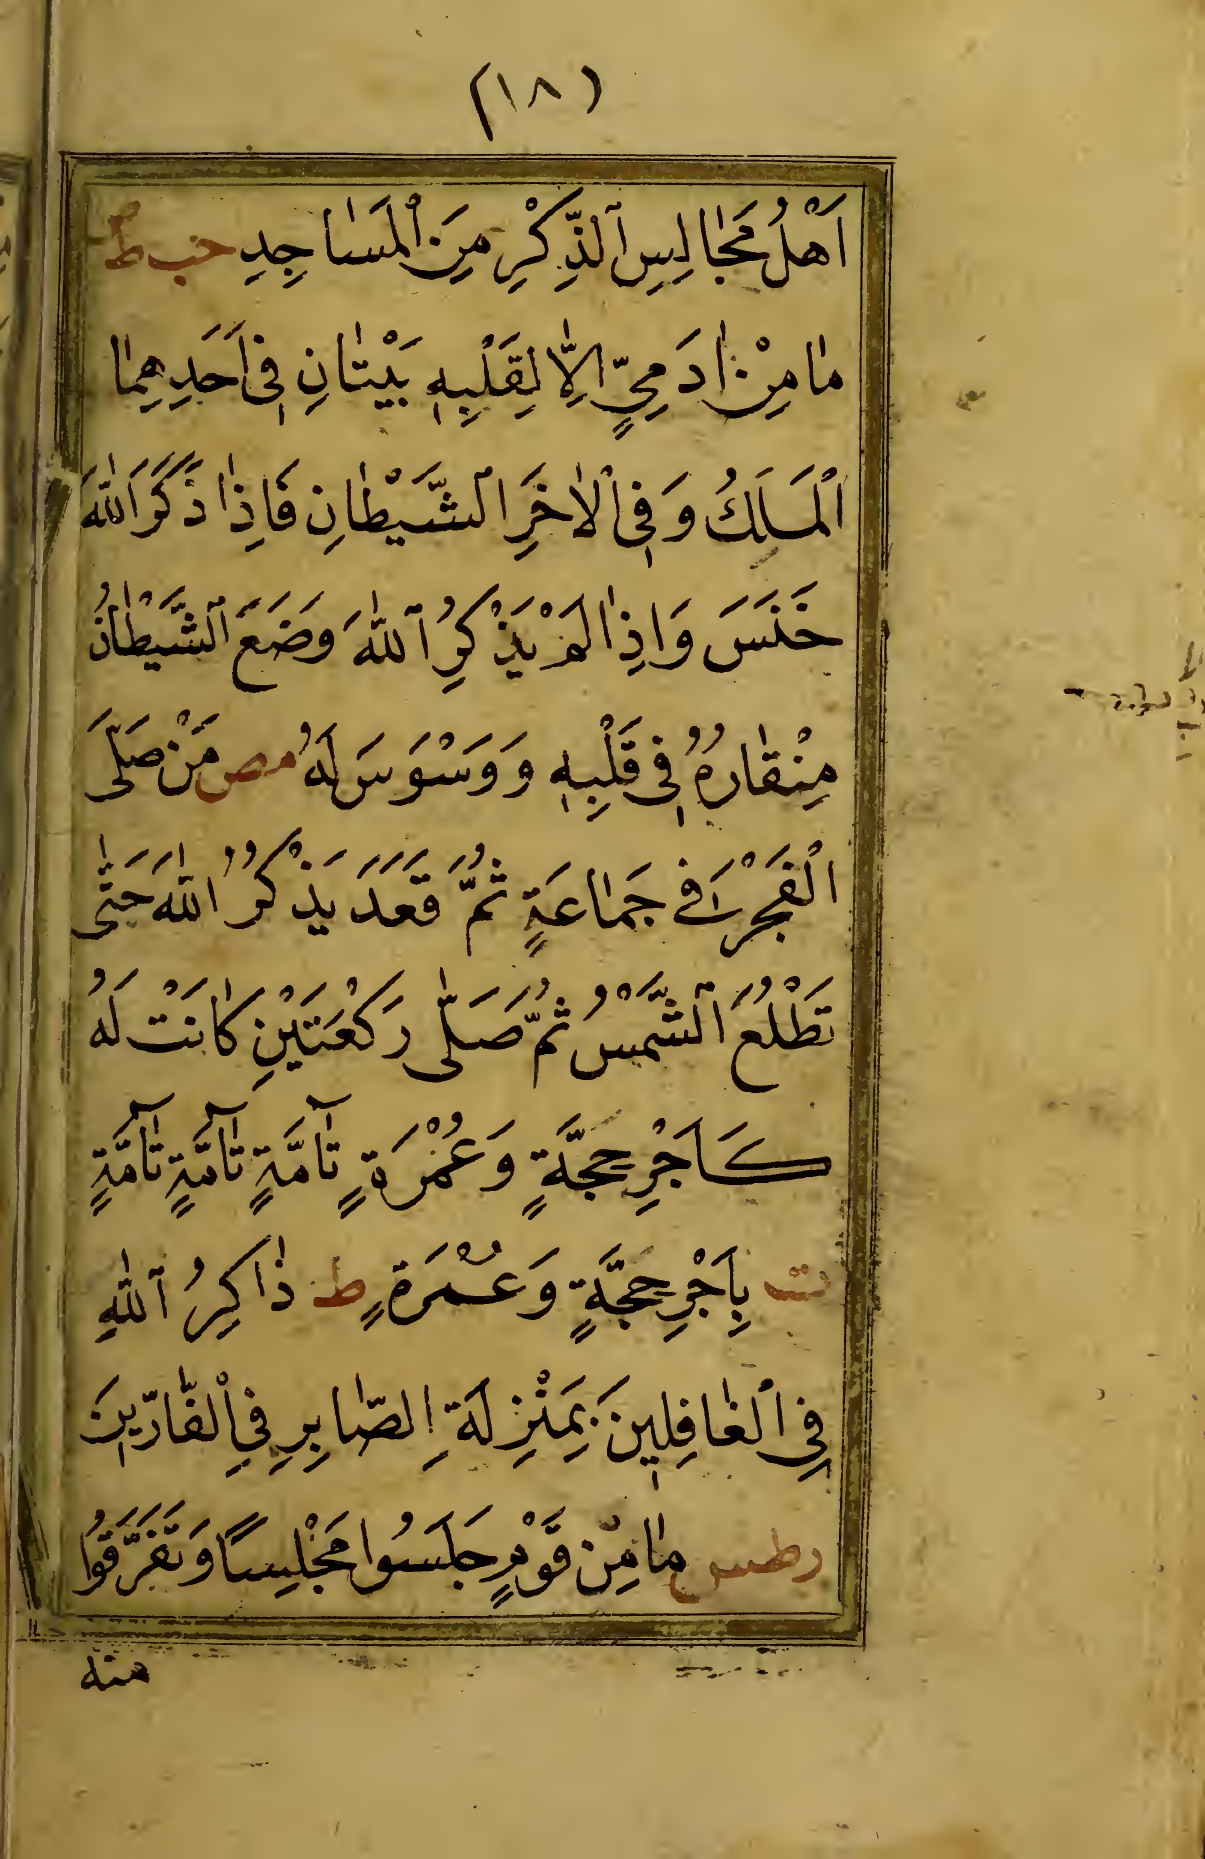 (١٨)
اَهْلُ مَجَالِسِ ٱلذِّكْرِ مِنَ ٱلْمَسَاجِدِ حب ط
مَا مِنْ اٰدَمِيٍّ اِلَّا لِقَلْبِهِ بَيْتَانِ فِى اَحَدِهِمَا
ٱلْمَلَكُ وَفِى ٱلْاٰخَرِ ٱلشَّيْطَانِ فَاِذَا ذَكَرَ اللّٰهَ
خَنَسَ وَاِذَا لَمْ يَذْكُرِ ٱللّٰهَ وَضَعَ ٱلشَّيْطَانُ
مِنْقَارَهُ فِى قَلْبِهِ وَوَسْوَسَ لَهُ مص مَنْ صَلَّى
الْفَجْرَ فِى جَمَاعَةٍ ثُمَّ قَعَدَ يَذْكُرُ اللّٰهَ حَتّٰى
تَطْلُعَ ٱلشَّمْسُ ثُمَّ صَلّٰى رَكْعَتَيْنِ كَانَتْ لَهُ
كَاَجْرِ حَجَّةٍ وَعُمْرَةٍ تَآمَّةٍ تَآمَّةٍ تَآمَّةٍ
ت بِاَجْرِ حَجَّةٍ وَعُمْرَةٍ ط ذَاكِرُ ٱللّٰهِ
فِى ٱلْغَافِلِينَ بِمَنْزِلَةِ الصَّابِرِ فِى ٱلْفَارِّينَ
ر طس مَا مِنْ قَوْمٍ جَلَسُوا مَجْلِسًا وَتَفَرَّقُوا
منه